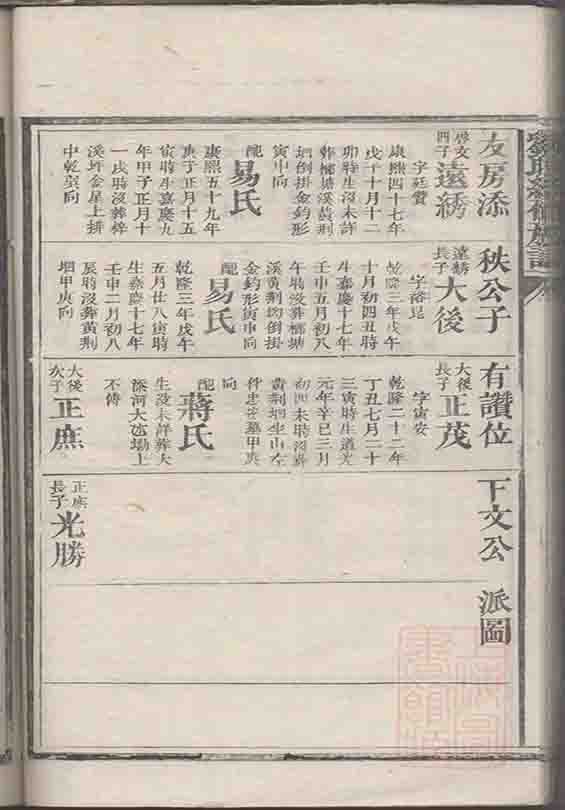 友房添秩公子有讚位下文公派圖
啓文四子遠綉
字廷贊
康熙四十七年
戊子十月十二
卯時生沒未詳
葬榔塘溪黃荆
垇倒掛金鈎形
寅申向
配易氏
康熙五十九年
庚子正月十五
寅時生嘉慶九
年甲子正月十
一戌時沒葬梓
溪坪金星上排
中乾巽向
遠綉長子大後
字裕昆
乾隆三年戊午
十月初四丑時
生嘉慶十七年
壬申五月初八
午時沒葬榔塘
溪黃荆垇倒掛
金鈎形寅申向
配易氏
乾隆三年戊午
五月廿八寅時
生嘉慶十七年
壬申二月初八
辰時沒葬黃荆
垇甲庚向
大後長子正茂
字寅安
乾隆二十二年
丁丑七月二十
三寅時生道光
元年辛巳三月
初四未時沒葬
黃荆垇坐山左
甲庚
向
配蔣氏
生沒未詳葬大
深河大 坳上
不傳
大後次子正庶
正庶長子光勝